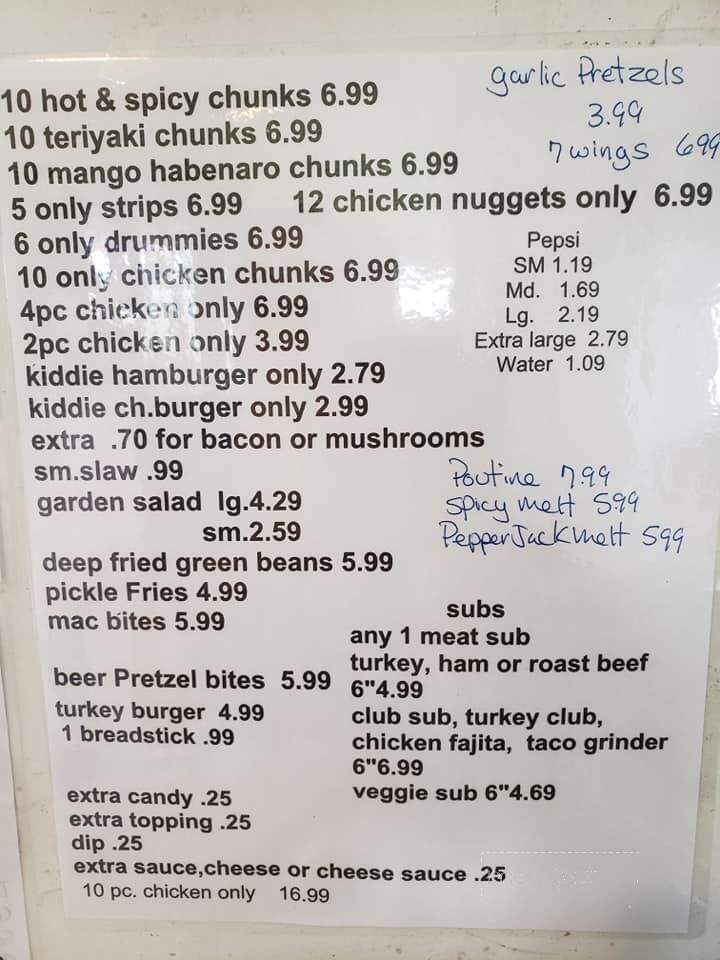 garlic Pretzels
3.99
7 wings 699
10 hot & spicy chunks 6.99
10 teriyaki chunks 6.99
10 mango habenaro chunks 6.99
5 only strips 6.99 12 chicken nuggets only 6.99
6 only drummies 6.99
10 only chicken chunks 6.99
4pc chicken only 6.99
2pc chicken only 3.99
kiddie hamburger only 2.79
kiddie ch.burger only 2.99
extra .70 for bacon or mushrooms
sm.slaw .99
garden salad lg.4.29
sm.2.59
deep fried green beans 5.99
pickle Fries 4.99
mac bites 5.99
beer Pretzel bites 5.99
turkey burger 4.99
1 breadstick .99
Pepsi
SM 1.19
Md. 1.69
Lg. 2.19
Extra large 2.79
Water 1.09
Poutine 7.99
spicy melt 599
Pepper Jack melt 599
subs
any 1 meat sub
turkey, ham or roast beef
6"4.99
club sub, turkey club,
chicken fajita, taco grinder
6"6.99
veggie sub 6"4.69
extra candy .25
extra topping .25
dip .25
extra sauce,cheese or cheese sauce .25
10 pc. chicken only 16.99